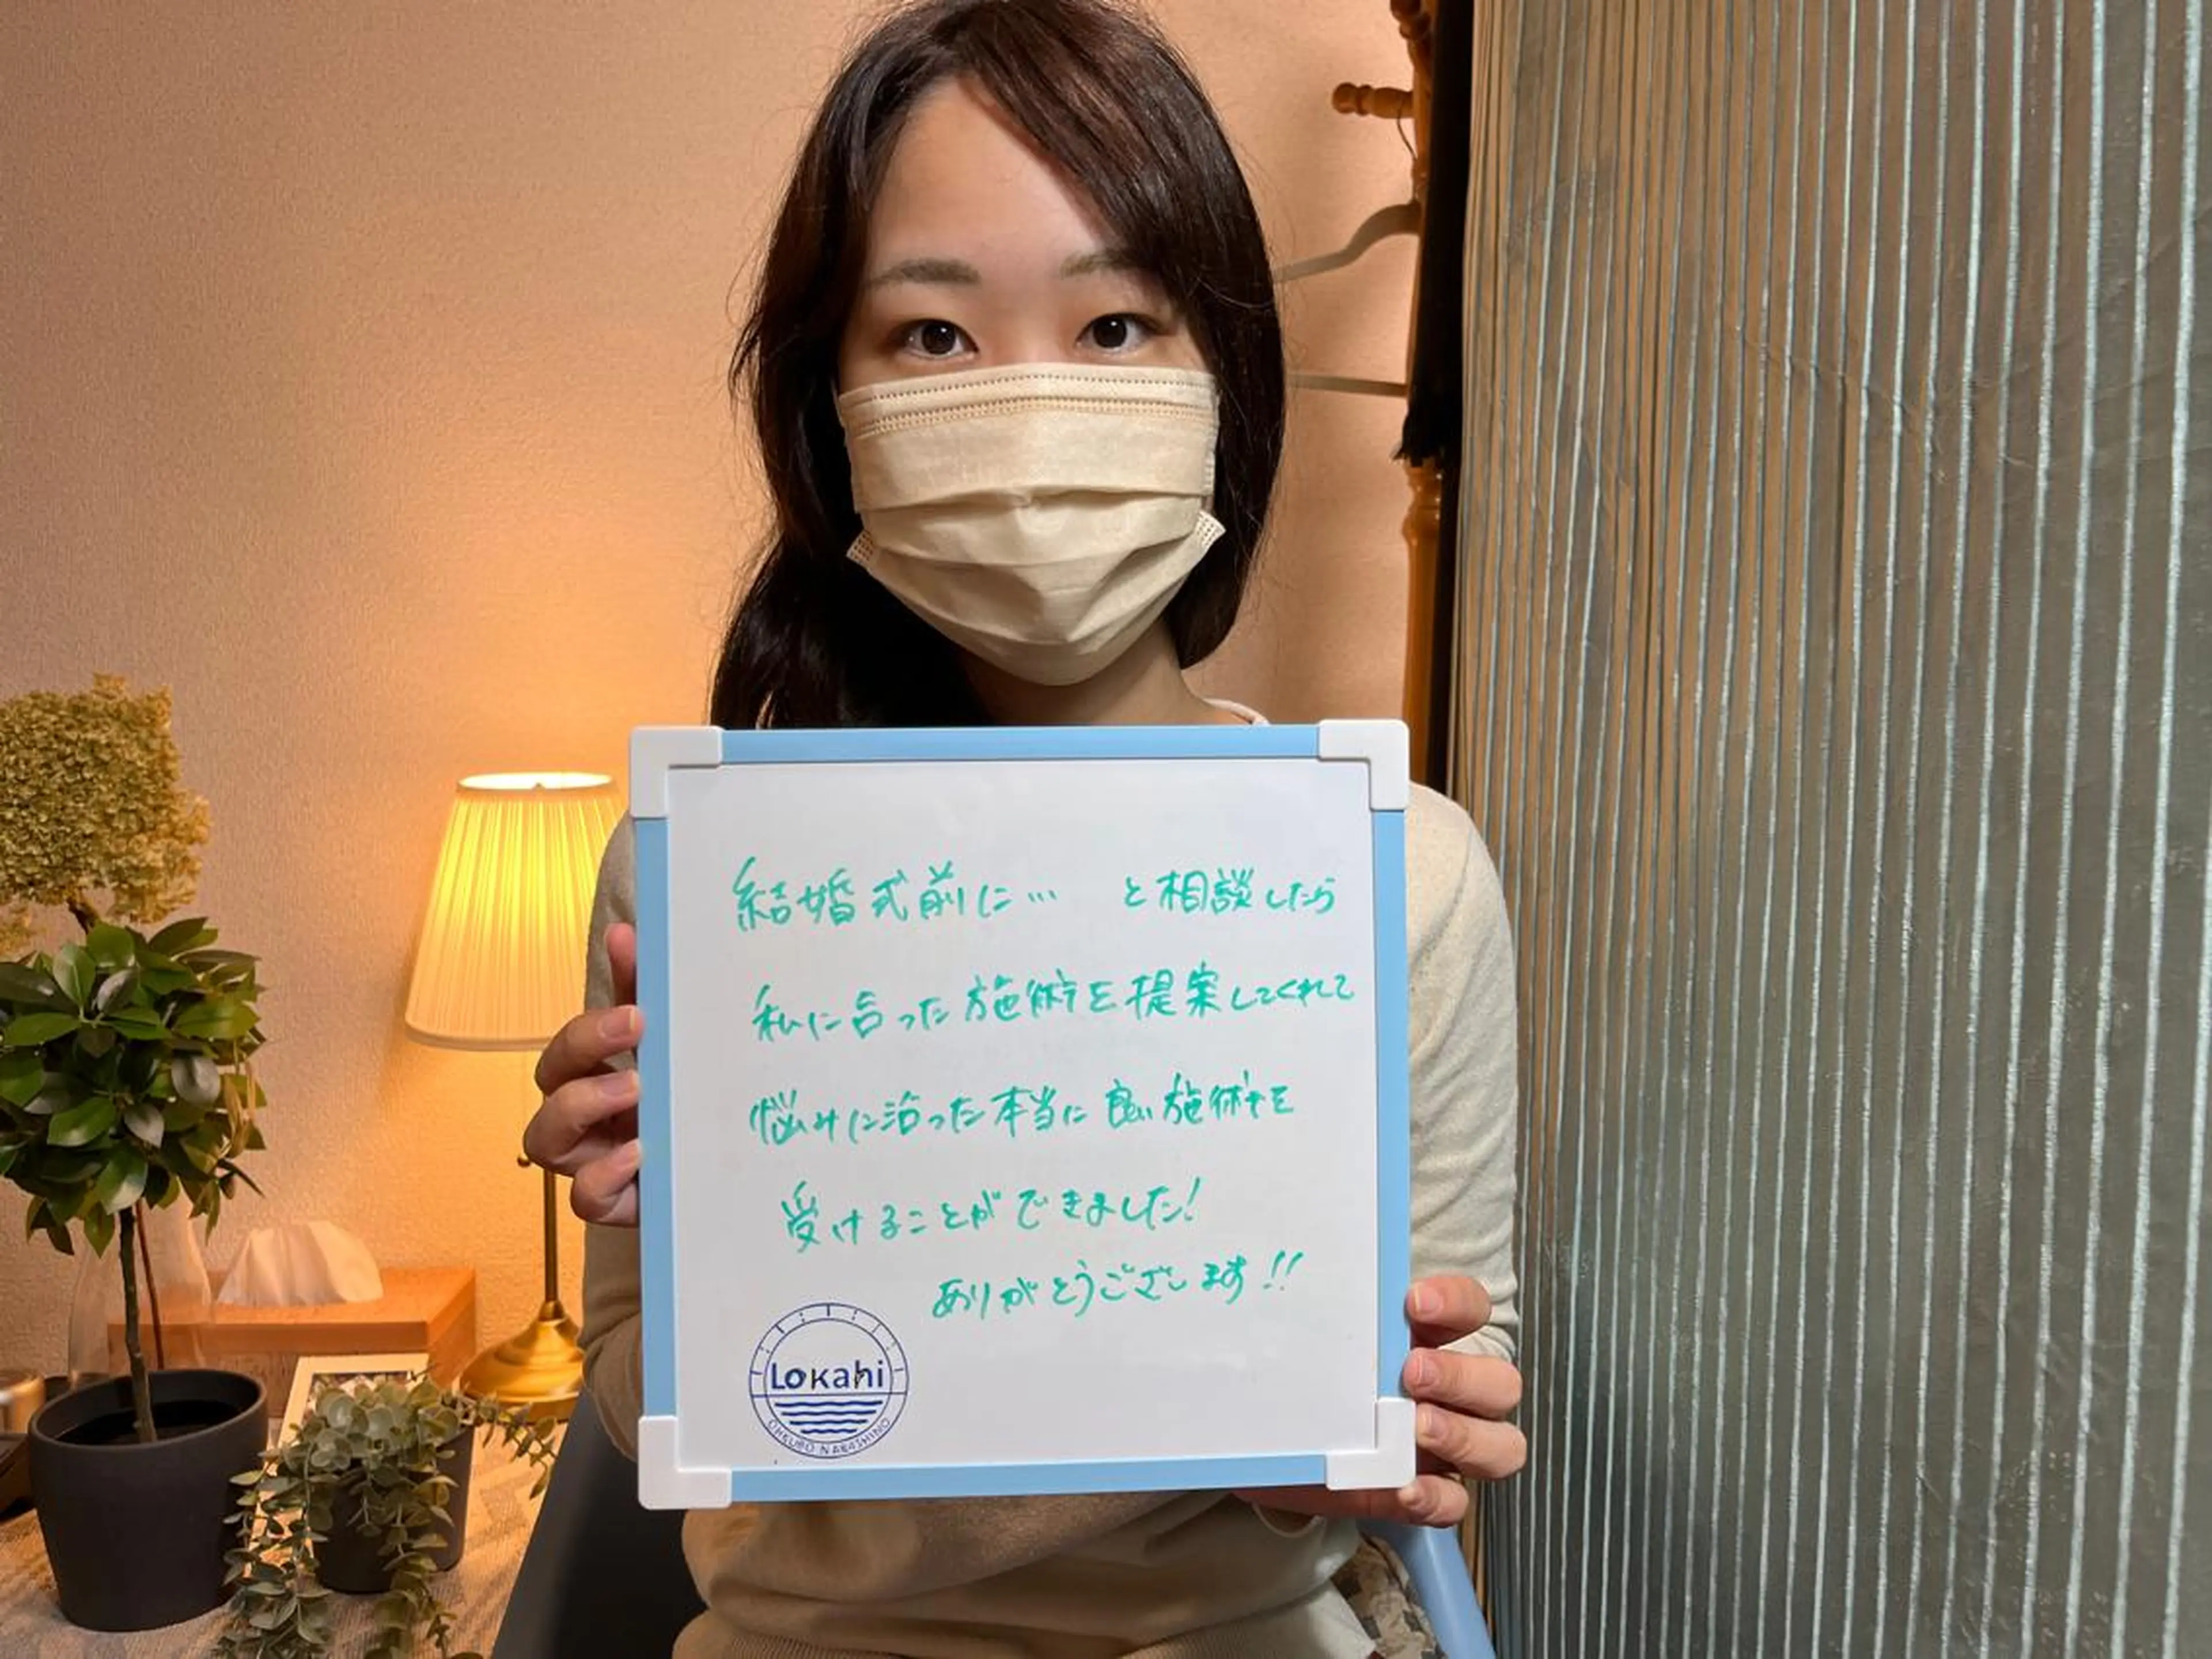 結婚式前に… と相談したら
私に合った施術を提案してくれて
悩みに沿った本当に良い施術を
受けることができました!
ありがとうございます!!
Lokahi
OHKUBO NARASHINO